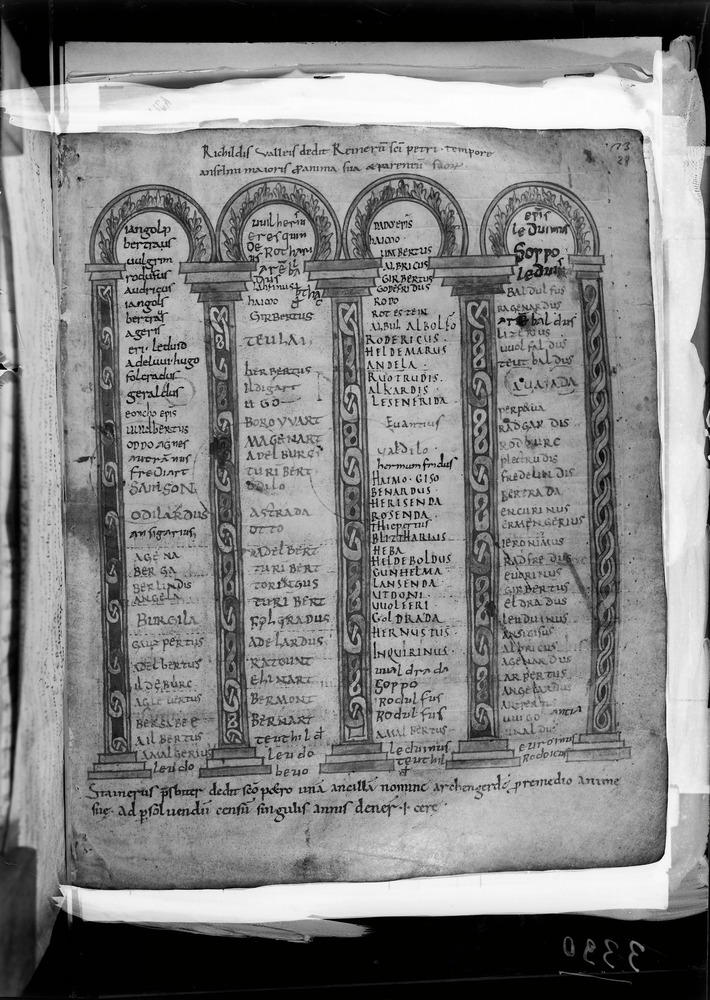 Richildis Valleis dedit Reinerū sc̄i petri · tempore
anselmi maioris ꝓ anima sua & parentū suoꝝ
173
29
iangolp
bertraus
uulgrim
rodulfus
audricus
iangols
bertraus
ageris
eri · leduid
adeluui · hugo
folcradus
geraldus
eoncho ep̄is
uuinbertus
oddo agnes
autranus
frediart
SAMSON
ODILARDUS
ansigarius
AGENA
BERGA
BERLINDIS
ANGELA
BURGILA
GUIPERTUS
ADELBERTUS
ILDEBURC
AGLEBERTUS
BERSABEE
AILBERTUS
AMALGERIUS
leudo
uuilherim
eresquin
DE ROTHARIUS
haimo
GIRBERTUS
TEULAI
HERBERTUS
ILDIGART
UGO
BOROVVART
MAGENART
ADELBURGS
TURIBERT
ODILO
ASTRADA
OTTO
RADELBERT
TURIBERT
TORINGUS
TURIBERT
FOLGRADUS
ADELARDUS
RATGUNT
ELINART
BERMONT
BERNART
TEUTHILD
leudo
beuo
DADO ep̄is
haimo
UMBERTUS
ALBRICUS
GIRBERTUS
GODEFRIDUS
RODO
ROTESTEIN
ALBUL ALBOLFO
RODERICUS
HELDEMARUS
ANDELA
RUOTRUDIS
ALKARDIS
LESENFRIDA
Euantius
Valdilo
hermumfridus
HAIMO · GISO
BENARDUS
HERISENDA
ROSENDA
Thiepertus
BLITTHARIUS
HEBA
HELDEBOLDUS
GUNHELMA
LANSENDA
UTDONI
UUOLFERI
GOLDRADA
HERNUSTUS
INQUIRINUS
uualdrada
GOPPO
RODULFUS
RODULFUS
AMALBERTUS
leduinus
teuthild
ep̄is
leduinus
Goppo
leduis
BALDULFUS
RAGENARDUS
arebaldus
LITERIUS
UUOLFALDUS
TEUTBALDUS
AUAIADA
perpaua
RADGARDIS
RODBURC
plectrudis
FREDELINDIS
BERTRADA
ENCURINUS
ERMENGERIUS
IERONIMUS
RADFREDUS
EUURINUS
GIRBERTUS
ELDRADUS
LEUDUINUS
ANSEISUS
ALPRICUS
AGENARDUS
ARPERTUS
ANGELARDUS
UUIGO
euroinus
Rodoicus
Stainerus p̄sbiter dedit sc̄o petro unā ancillā nomine archengerdē ꝓ remedio anime
sue · ad ꝑsoluendū censū singulis annis dener · ī · cere
3390